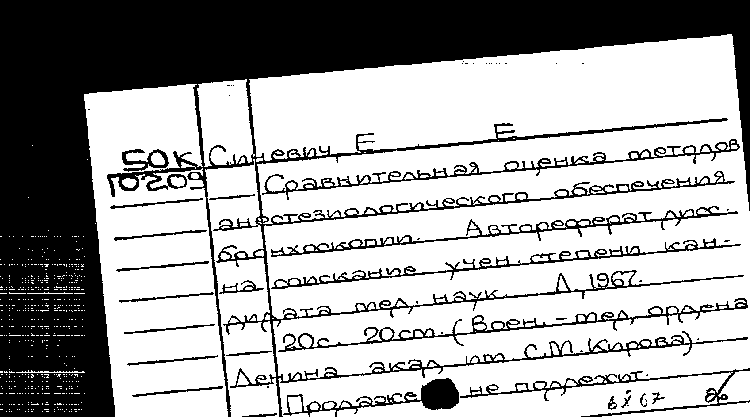 50К Синевич, Е Е
10209 Сравнительная оценка методов
анестезиологического обеспечения
бронхоскопии. Автореферат дисс.
на соискание учен. степени кан-
дидата мед. наук. Л., 1967.
20с. 20см. (Воен.-мед. ордена
Ленина акад. им. С.М.Кирова).
Продаже не подлежит.
67